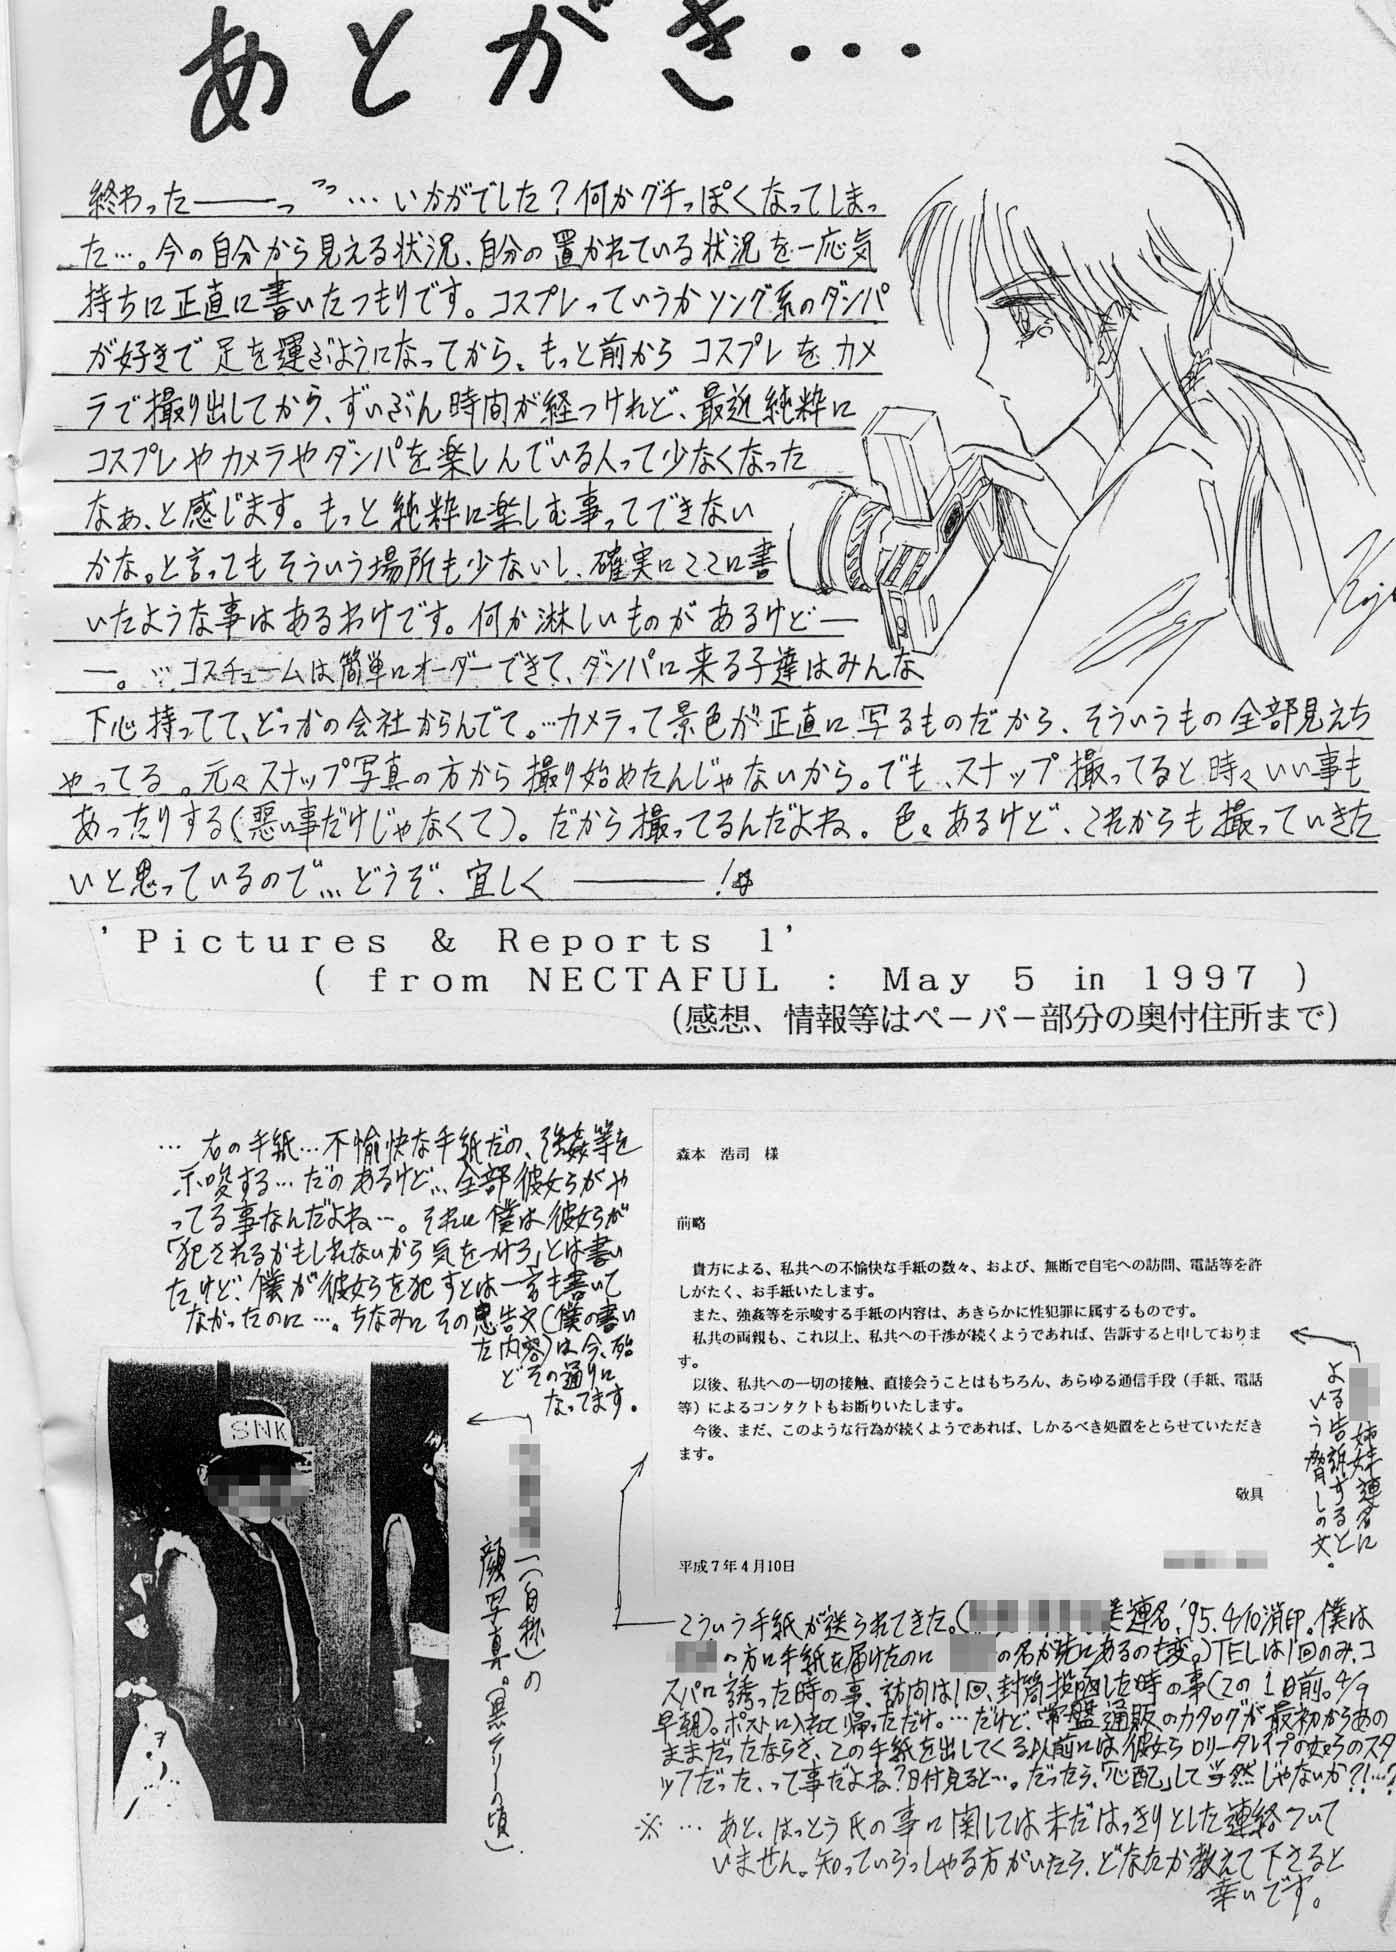 あとがき…
終わったーーっ…いかがでした?何かグチっぽくなってしまっ
た…。今の自分から見える状況、自分の置かれている状況を一応気
持ちに正直に書いたつもりです。コスプレっていうかソング系のダンパ
が好きで足を運ぶようになってから、もっと前からコスプレをカメ
ラで撮り出してから、ずいぶん時間が経つけれど、最近純粋に
コスプレやカメラやダンパを楽しんでいる人って少なくなった
なぁ、と感じます。もっと純粋に楽しむ事ってできない
かな。と言ってもそういう場所も少ないし、確実にここに書
いたような事はあるわけです。何か淋しいものがあるけどー
ー。…コスチュームは簡単にオーダーできて、ダンパに来る子達はみんな
下心持ってて、どっかの会社からんでて。…カメラって景色が正直に写るものだから、そういうもの全部見えち
ゃってる。元々スナップ写真の方から撮り始めたんじゃないから。でも、スナップ撮ってると時々いい事も
あったりする(悪い事だけじゃなくて)。だから撮ってるんだよね。色々あるけど、これからも撮っていきた
いと思っているので…どうぞ、宜しく――!☆
'Pictures & Reports 1'
( from NECTAFUL : May 5 in 1997 )
(感想、情報等はペーパー部分の奥付住所まで)
… 右の手紙…不愉快な手紙だの、強姦等を
示唆する…だのあるけど…全部彼女らがや
ってる事なんだよね…。それに僕は彼女らが
「犯されるかもしれないから気をつけろ」とは書い
たけど、僕が彼女らを犯すとは一言も書いて
なかったのに…。ちなみにその忠告文(僕の書い
た内容)は今、殆
どその通りに
なってます。
SNK
(自称)の
顔写真。(黒テリーの頃)
森本 浩司 様
前略
貴方による、私共への不愉快な手紙の数々、および、無断で自宅への訪問、電話等を許
しがたく、お手紙いたします。
また、強姦等を示唆する手紙の内容は、あきらかに性犯罪に属するものです。
私共の両親も、これ以上、私共への干渉が続くようであれば、告訴すると申しておりま
す。
以後、私共への一切の接触、直接会うことはもちろん、あらゆる通信手段(手紙、電話
等)によるコンタクトもお断りいたします。
今後、まだ、このような行為が続くようであれば、しかるべき処置をとらせていただき
ます。
敬具
平成7年4月10日
姉妹連名に
よる告訴すると
いう脅しの文。
こういう手紙が送られてきた。(連名、'95.4/10消印。僕は
の方に手紙を届けたのにの名が先にあるのも変。)TELは1回のみ、コ
スパに誘った時の事、訪問は1回、封筒投函した時の事(この1日前。4/9
早朝)。ポストに入れて帰っただけ。…だけど、常盤通販のカタログが最初からあの
ままだったならさ、この手紙を出してくる以前には彼女らロリータレイプの奴らのスタ
ッフだった、って事だよね?日付見ると…。だったら、「心配」して当然じゃないか?!…?
※…あと、はっとう氏の事に関しては未だはっきりとした連絡ついて
いません。知っていらっしゃる方がいたら、どなたか教えて下さると
幸いです。